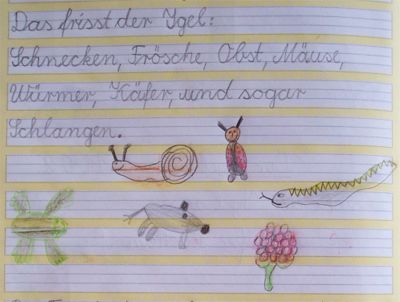 Das frisst der Igel:
Schnecken, Frösche, Obst, Mäuse,
Würmer, Käfer, und sogar
Schlangen.